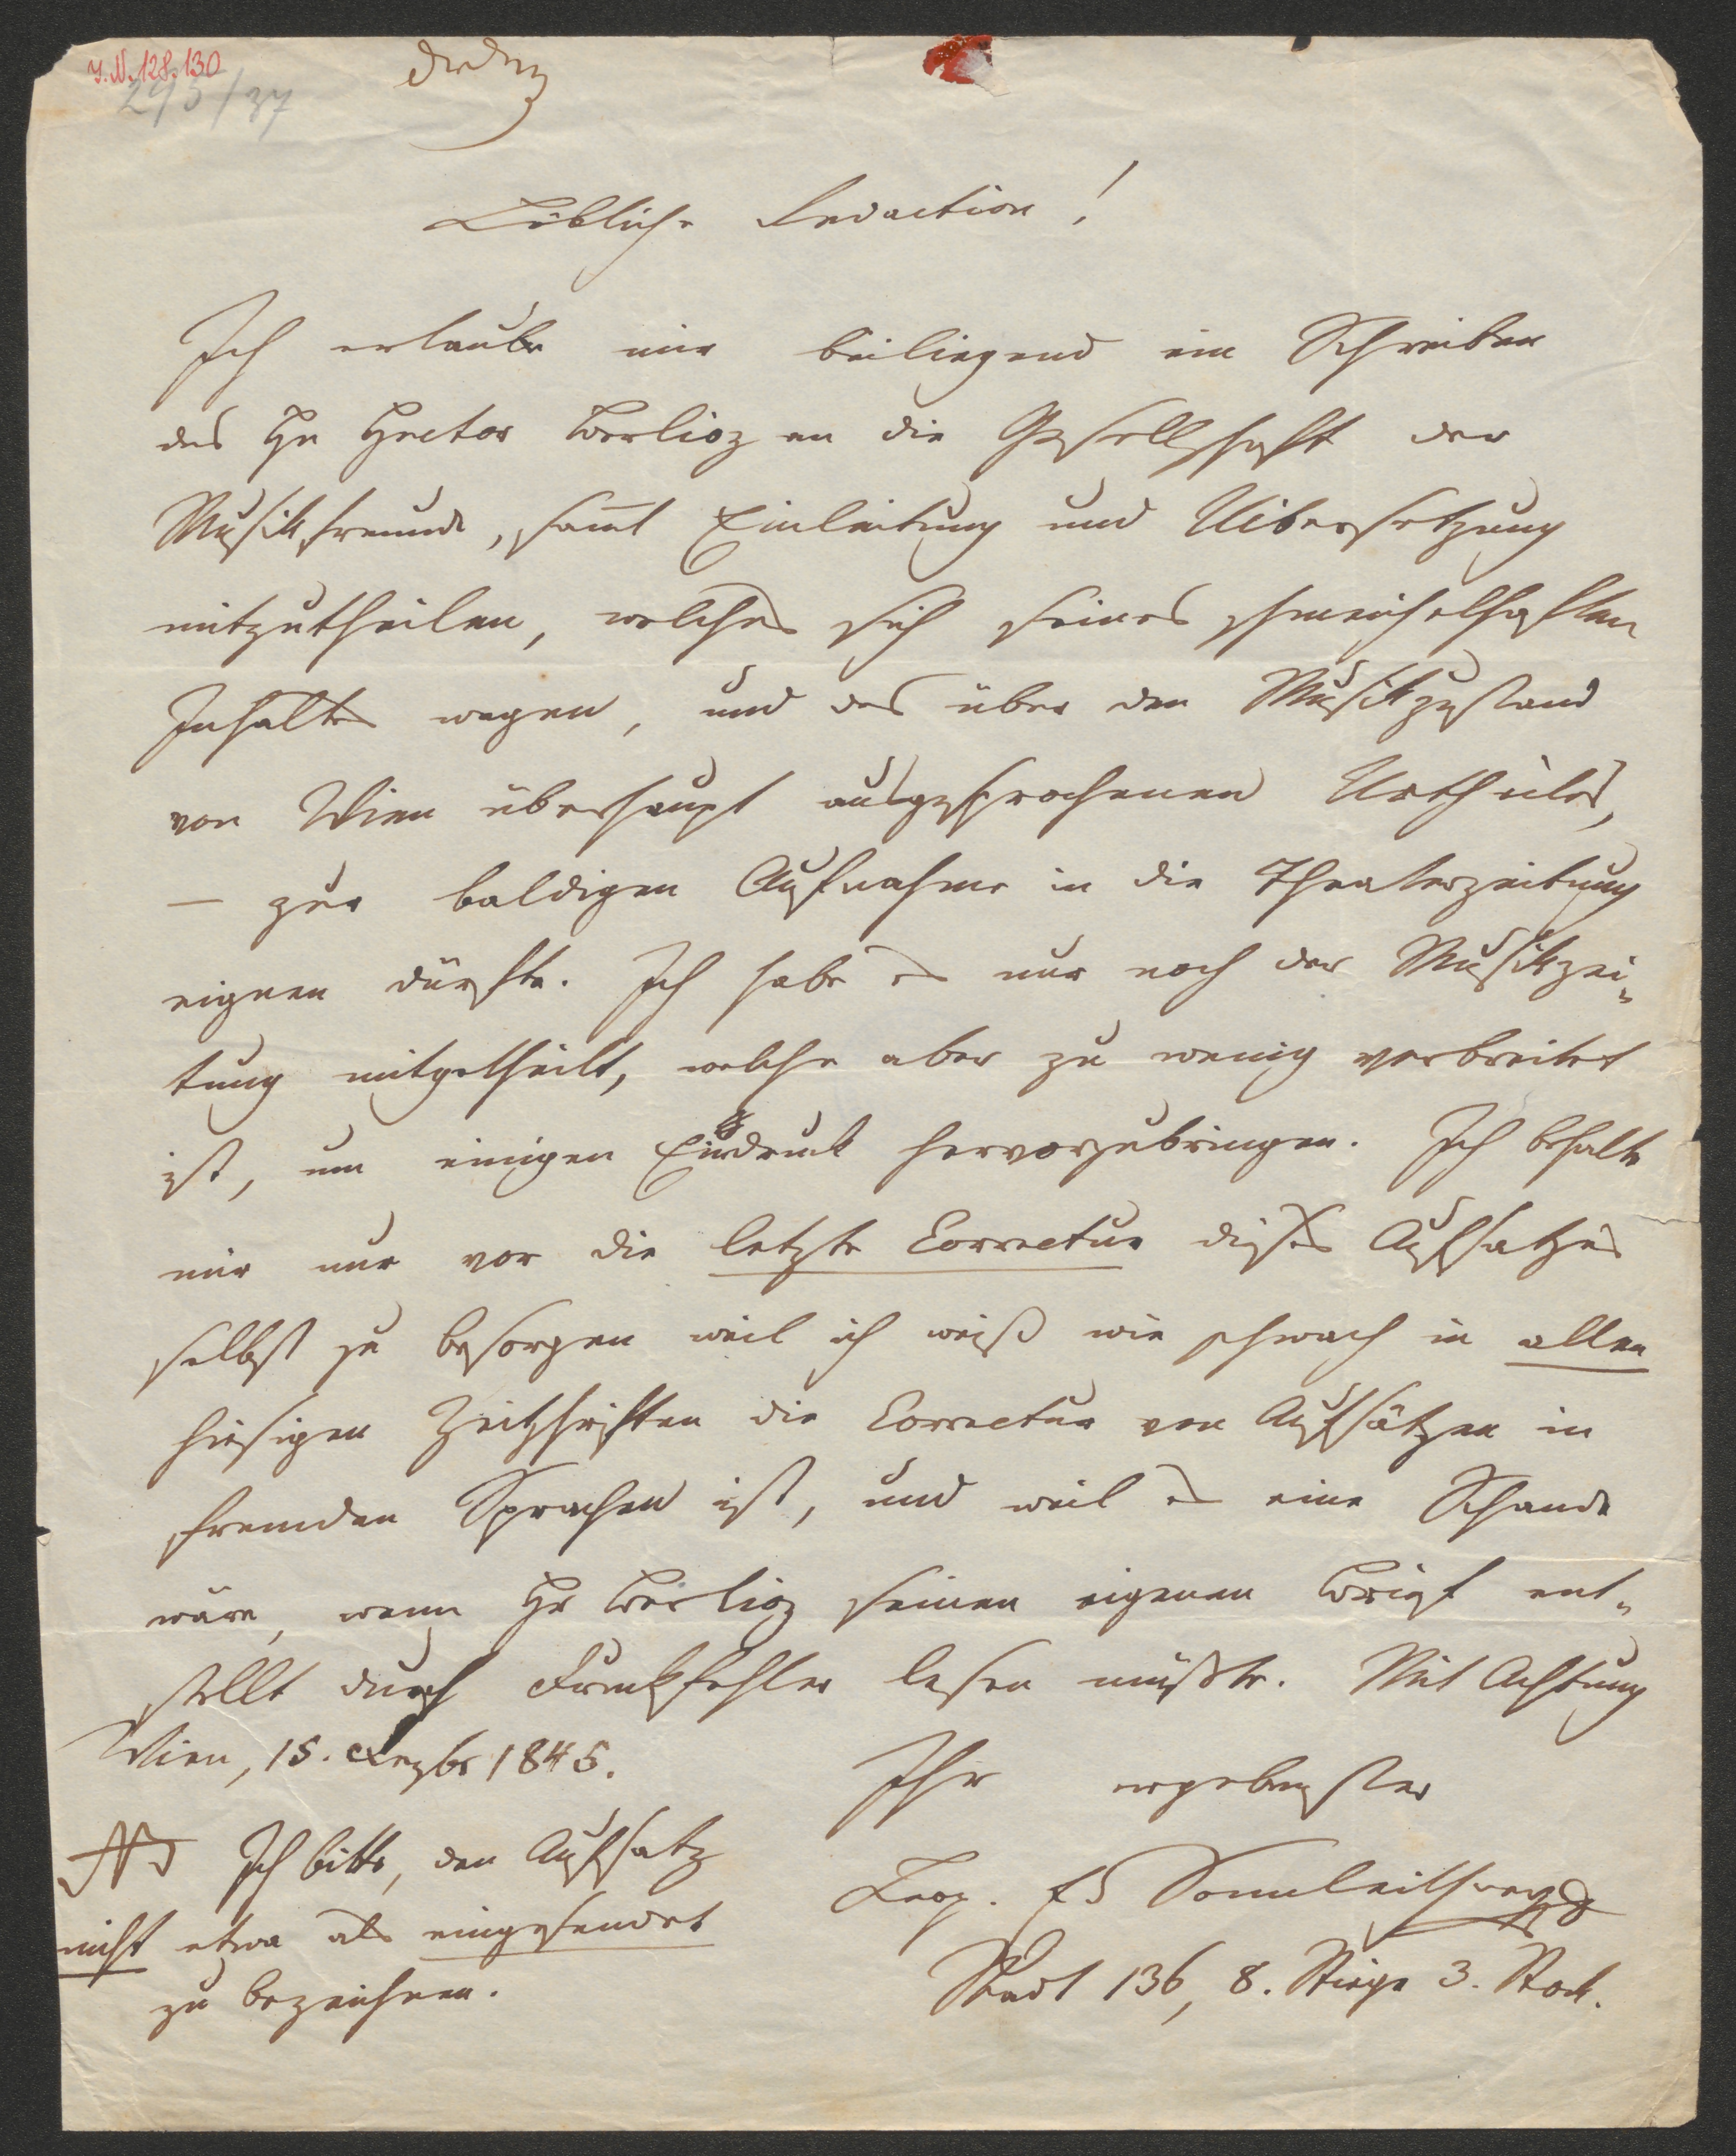 I.N. 128.130
295/37
Löbliche Redaction!
Ich erlaube mir beiliegend ein Schreiben
des Hr Hector Berlioz an die Gesellschaft der
Musikfreunde, sam̄t Einleitung und Uibersetzung
mitzutheilen, welches sich seines schmeichelhaften
Inhaltes wegen, und des über den Musikzustand
von Wien überhaupt ausgesprochenen Urtheiles,
— zur baldigen Aufnahme in die Theaterzeitung
eignen dürfte. Ich habe es nur noch der Musikzei-
tung mitgetheilt, welche aber zu wenig verbreitet
ist, um einigen Eindruck hervorzubringen. Ich behalte
mir nur vor die letzte Correctur dieses Aufsatzes
selbst zu besorgen weil ich weiß wie schwach in allen
hiesigen Zeitschriften die Correctur von Aufsätzen in
fremden Sprachen ist, und weil es eine Schande
wäre, wenn Hr Berlioz seinen eigenen Brief ent-
stellt durch Druckfehler lesen müßte. Mit Achtung
Wien, 15. Dezbr 1845.
Ihr ergebenster
Leop. Ed Sonnleithner
Stadt 136, 8. Stiege 3. Stock.
NB Ich bitte, den Aufsatz
nicht etwa als eingesendet
zu bezeichnen.